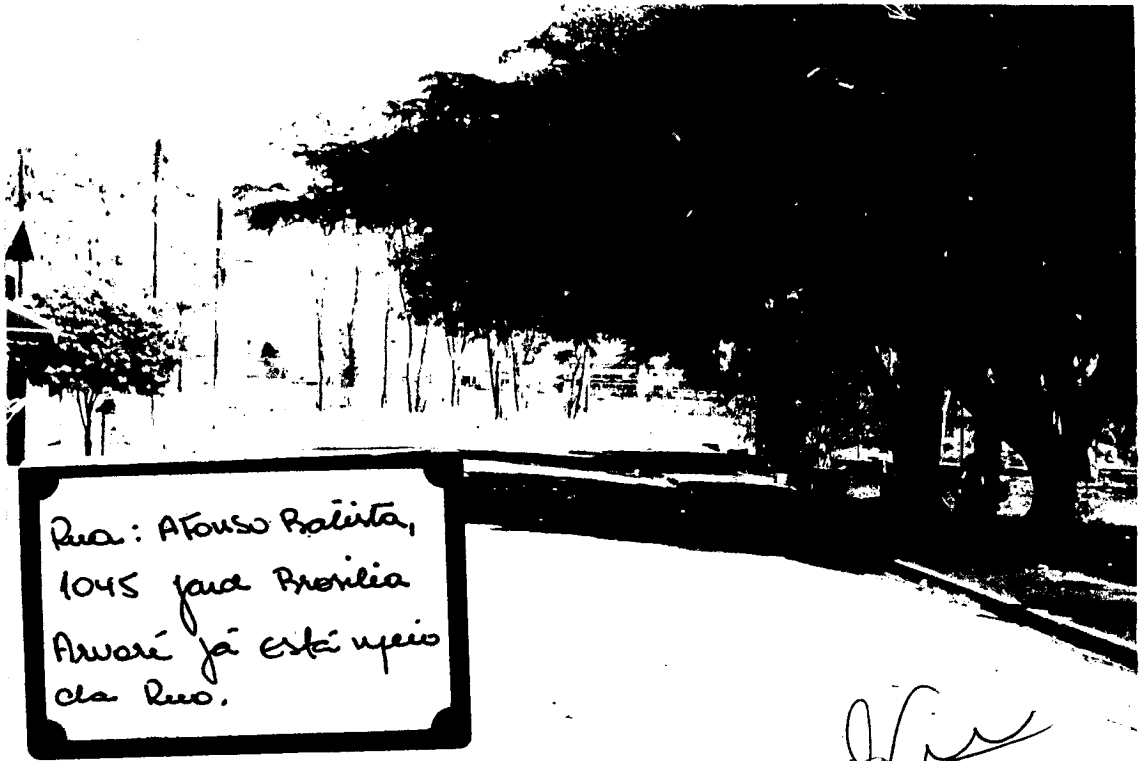 Rua: Afonso Batista,
1045 jard Brasilia
Arvoré já está meio
da Rua.